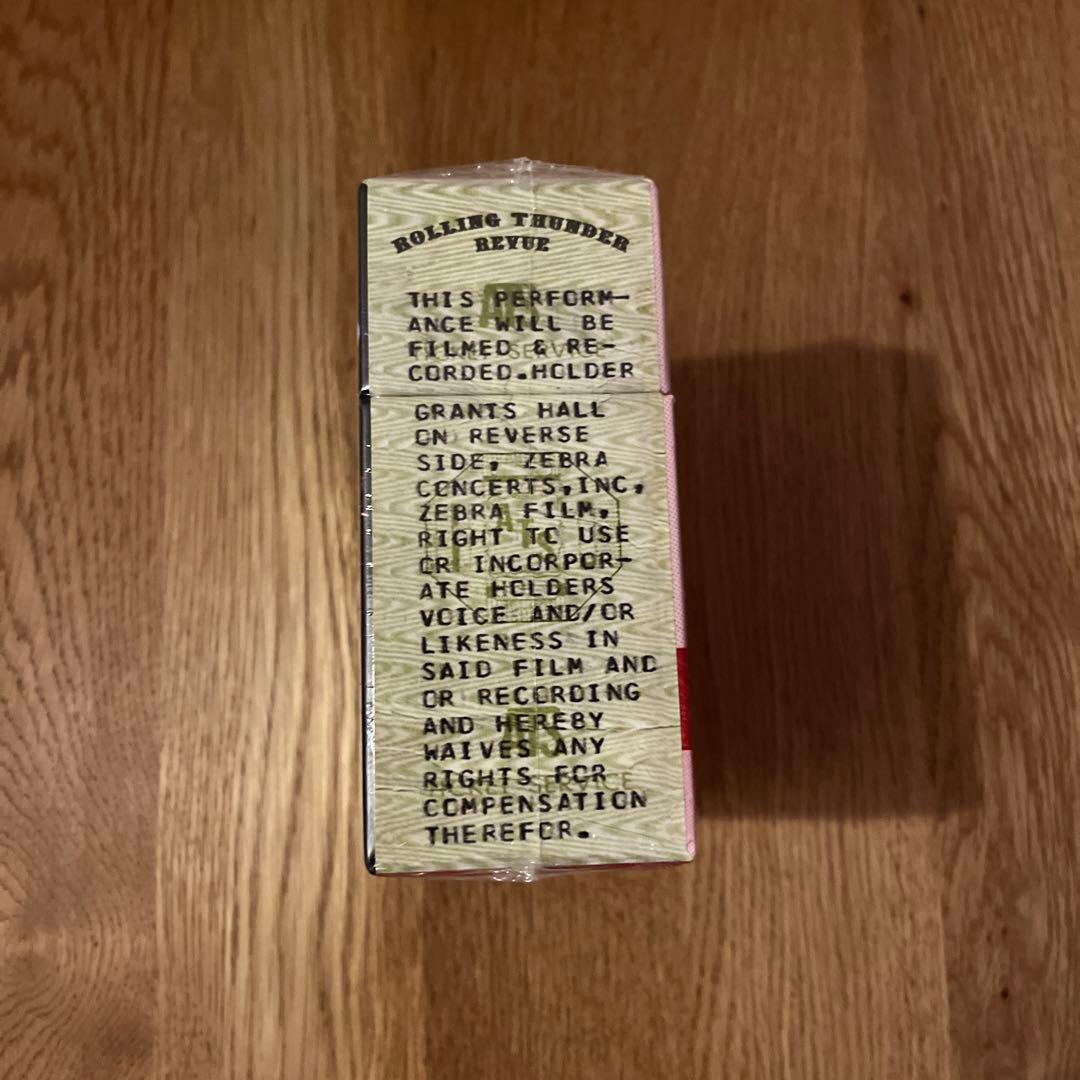 ROLLING THUNDER
REVUE
THIS PERFORM-
ANCE WILL BE
FILMED & RE-
CORDED.HOLDER
GRANTS HALL
ON REVERSE
SIDE, ZEBRA
CONCERTS,INC,
ZEBRA FILM,
RIGHT TO USE
OR INCORPOR-
ATE HOLDERS
VOICE AND/OR
LIKENESS IN
SAID FILM AND
OR RECORDING
AND HEREBY
WAIVES ANY
RIGHTS FOR
COMPENSATION
THEREFOR.